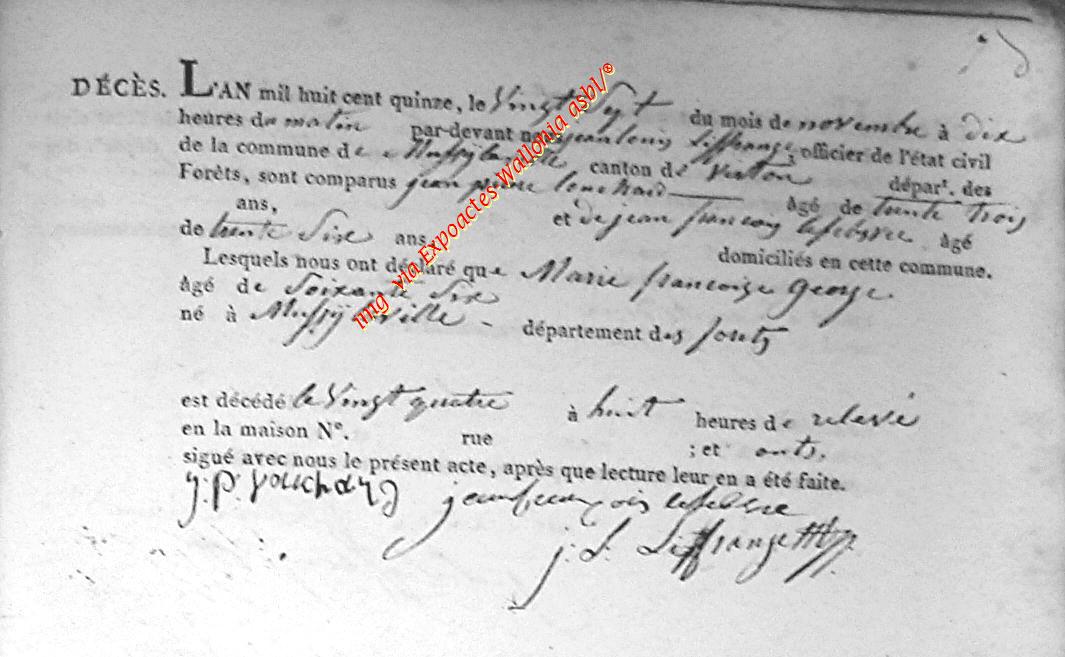 DÉCÈS. L'AN mil huit cent quinze, le Vingt Sept du mois de novembre à dix
heures du matin par-devant nous jean louis Liffrange, officier de l'état civil
de la commune de Mussy la ville canton de Virton départ. des
Forêts, sont comparus jean pierre âgé de trente trois
ans, et de jean francois lefebvre âgé
de trente Six ans, domiciliés en cette commune.
Lesquels nous ont déclaré que Marie francoise george
âgé de Soixante Six
né à Mussÿ la Ville département des
est décédé le Vingt quatre à huit heures de relevé
en la maison N°. rue ; et onts,
signé avec nous le présent acte, après que lecture leur en a été faite.
j: p. jean françois lefebvre
j. L. Liffrange
img via Expoactes-Wallonia asbl/®